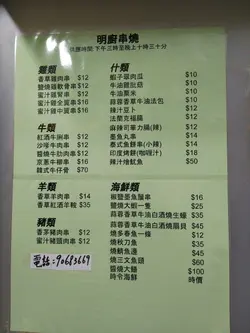 明廚串燒
供應時間:下午三時至晚上十時三十分
雞類
香草雞肉串 $12
鹽燒雞軟骨串 $12
蜜汁雞腎串 $12
蜜汁雞全翼串 $16
蜜汁雞中翼串 $16
牛類
紅酒牛脷串 $12
沙嗲牛肉串 $12
醬燒牛肋串 $12
京蔥牛柳串 $16
韓式牛仔骨 $70
羊類
香草羊肉串 $14
香草紅酒羊鞍 $35
豬類
香茅豬肉串 $12
蜜汁豬頸肉串 $12
電話:90683669
什類
蝦子翠肉瓜 $10
牛油雞肶菇 $10
牛油粟米 $10
蒜蓉香草牛油法包 $10
辣汁豆卜 $12
法蘭克福腸 $12
麻辣司華力腸(辣) $12
墨魚丸串 $14
泰式魚餅串(小辣) $14
印度燒餅(咖喱汁) $18
辣汁燴魷魚 $50
海鮮類
椒鹽墨魚腿串 $16
鹽燒大蝦一隻 $25
蒜蓉香草牛油白酒燒生蠔 $35
蒜蓉香草牛油白酒燒扇貝 $45
燒多春魚一條 $12
燒秋刀魚 $35
燒鯖魚邊 $45
燒三文魚頭 $60
醬燒大鱔 $100
時令海鮮 時價